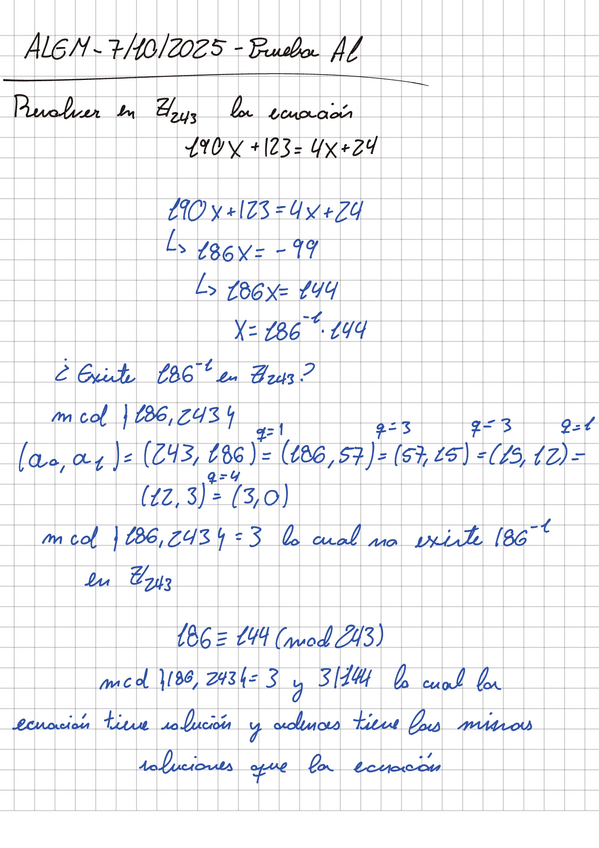 ALEM - 7/10/2025 - Prueba A1
Resolver en Z243 la ecuación
190x + 123 = 4x + 24
190x + 123 = 4x + 24
↳ 186x = -99
↳ 186x = 144
x = 186⁻¹ · 144
¿Existe 186⁻¹ en Z243?
mcd {186, 243}
q=1 q=3 q=3 q=1
(a₀, a₁) = (243, 186) = (186, 57) = (57, 15) = (15, 12) =
q=4
(12, 3) = (3, 0)
mcd {186, 243} = 3 lo cual no existe 186⁻¹
en Z243
186 ≡ 144 (mod 243)
mcd {186, 243} = 3 y 3|144 lo cual la
ecuación tiene solución y ademas tiene las mismas
soluciones que la ecuación